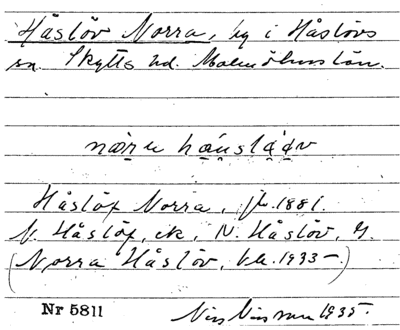 Håslöv Norra, by i Håslövs
sn. Skytts hd. Malmöhus län.
Håslöf Norra, jb. 1881.
N. Håslöf, ek, N. Håslöv, G.
(Norra Håslöv, 1933-.)
Nr 5811
Nils Nilsson 1935.